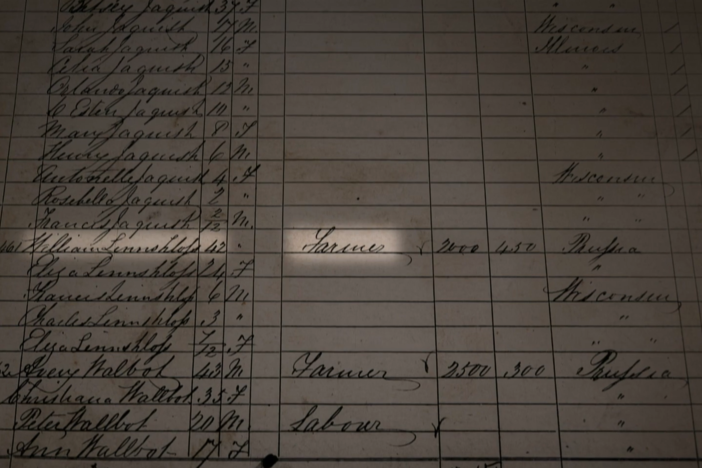 Betsey Jaquish 37 F " "
John Jaquish 17 M. Wisconsin /
Sarah Jaquish 16 F Illinois /
Celia Jaquish 13 " " /
Orlando Jaquish 12 M "
C Ellen Jaquish 10 " "
Mary Jaquish 8 F " /
Henry Jaquish 6 M. " /
Jaquish 4 F Wisconsin
Rosebella Jaquish 2 " " "
Francis Jaquish 2/12 M. " "
William Linnshlop 42 " Farmer 2000 450 Prussia
Eliza Linnshlop 24 F "
Francis Linnshlop 6 M Wisconsin
Charles Linnshlop 3 " "
Eliza Linnshlop 7/12 F " "
Walbot 43 M Farmer 2500 300 Prussia
Christiana Wallbot 35 F "
Peter Wallbot 20 M Labour "
Ann Wallbot 17 F "